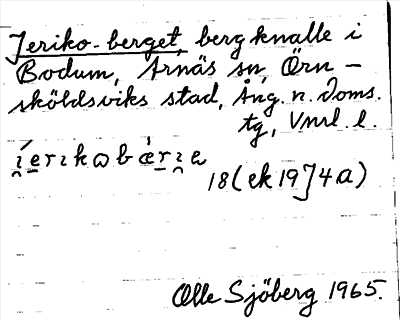 Jeriko-berget, bergknalle i
Bodum, Arnäs sn, Örn-
sköldsviks stad, Ång. n. doms.
tg, Vnrl. l.
18(ek 19J4a)
Olle Sjöberg 1965.